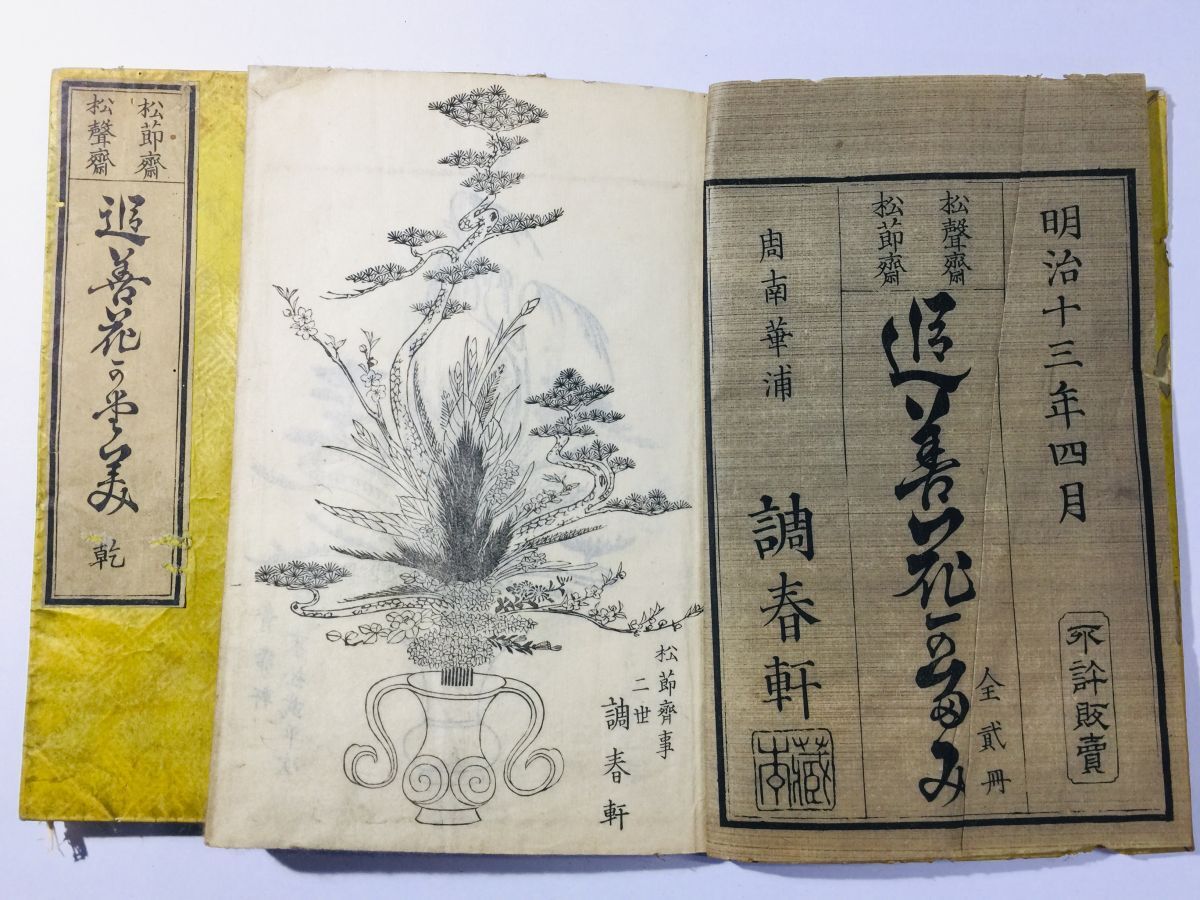 明治十三年四月
不許販賣
松聲齋
松節齋
追善花可當み
全貳冊
周南華浦
調春軒
藏本
松節齊事
二世
調春軒
松節齋
松聲齋
追善花可堂美
乾